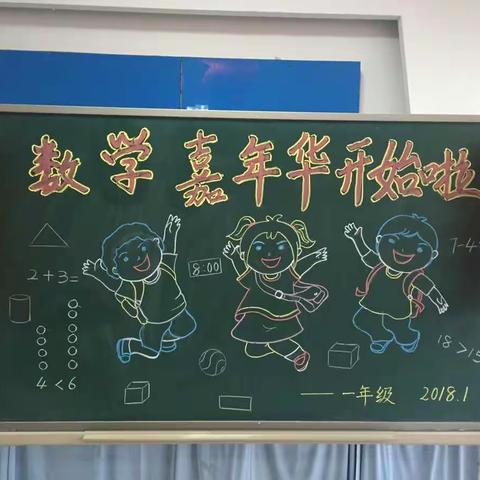 数学嘉年华开始啦
8:00
7-4
2+3=
18>15
4<6
——一年级 2018.1